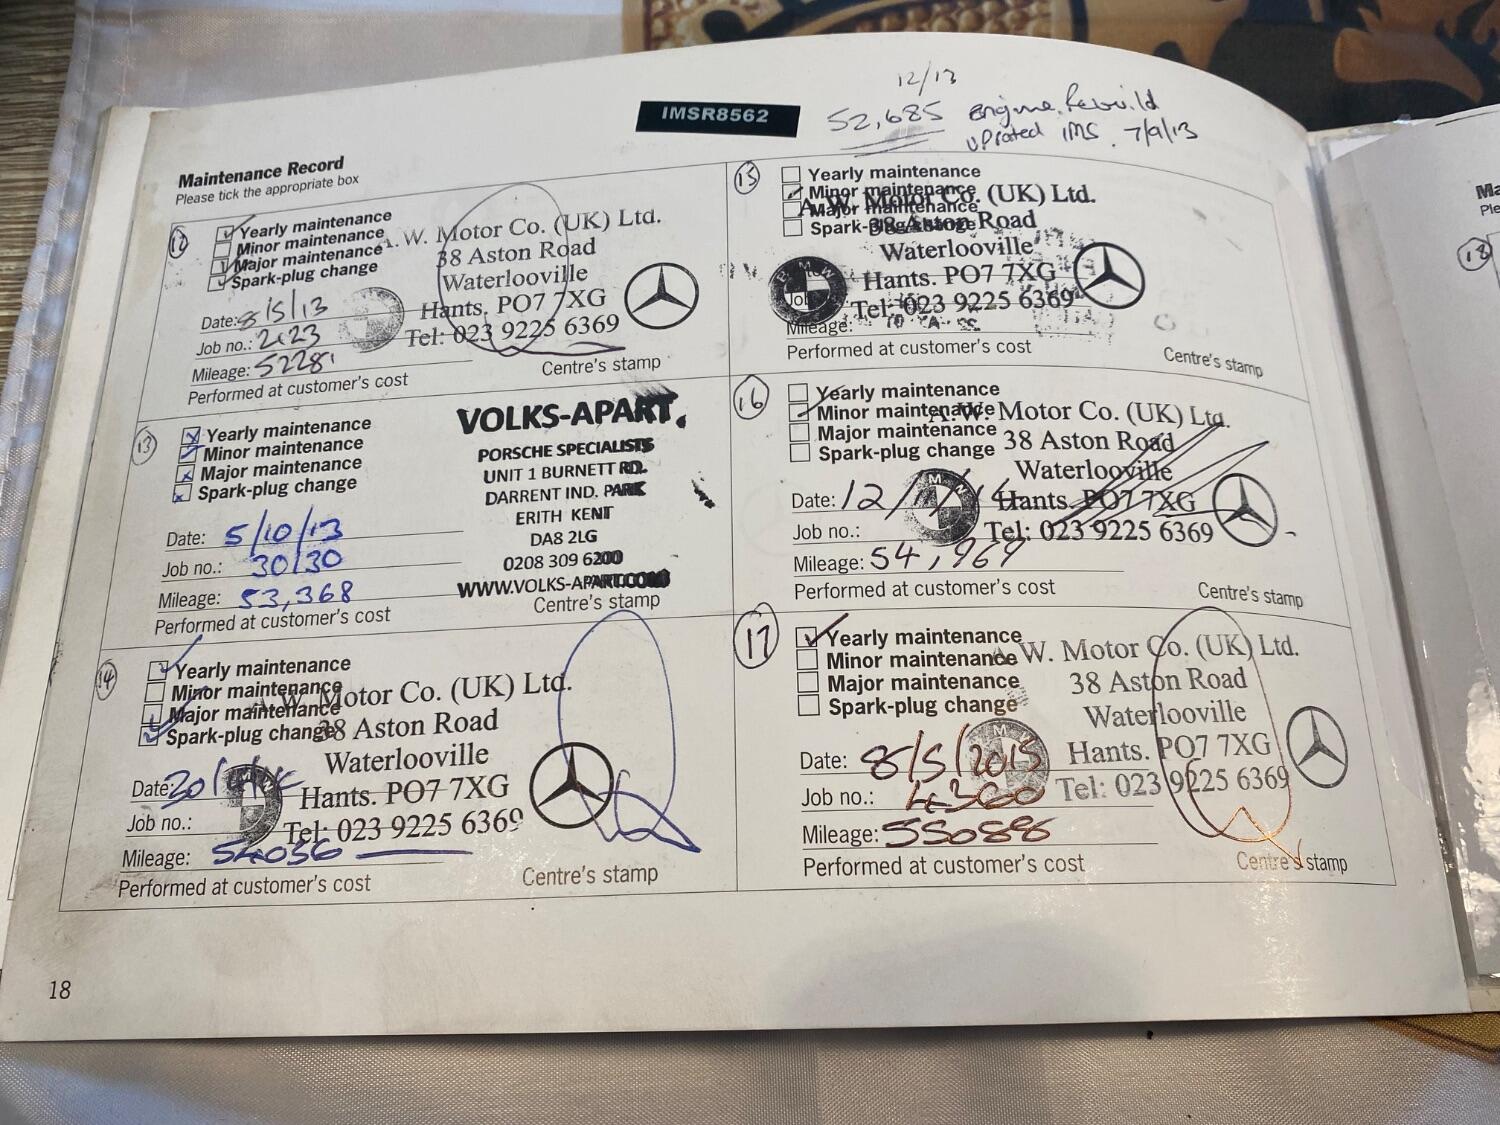 12/13
IMSR8562
52,685 engine Rebuild
uprated IMS. 7/9/13
Maintenance Record
Please tick the appropriate box
Yearly maintenance
Minor maintenance
Major maintenance
Spark-plug change
A.W. Motor Co. (UK) Ltd.
38 Aston Road
Waterlooville
Hants. PO7 7XG
Tel: 023 9225 6369
Date: 8/5/13
Job no.:
Mileage: 52281
Performed at customer's cost
Centre's stamp
13
Yearly maintenance
Minor maintenance
Major maintenance
Spark-plug change
VOLKS-APART.
PORSCHE SPECIALISTS
UNIT 1 BURNETT RD.
DARRENT IND. PARK
ERITH KENT
DA8 2LG
0208 309 6200
WWW.VOLKS-APART.COM
Date: 5/10/13
Job no.: 30/30
Mileage: 53,368
Performed at customer's cost
Centre's stamp
14
Yearly maintenance
Minor maintenance
Major maintenance
Spark-plug change
A.W. Motor Co. (UK) Ltd.
38 Aston Road
Waterlooville
Hants. PO7 7XG
Tel: 023 9225 6369
Date:
Job no.:
Mileage: 54036
Performed at customer's cost
Centre's stamp
15
Yearly maintenance
Minor maintenance
Major maintenance
Spark-plug change
A.W. Motor Co. (UK) Ltd.
38 Aston Road
Waterlooville
Hants. PO7 7XG
Tel: 023 9225 6369
BMW
Mileage:
Performed at customer's cost
Centre's stamp
16
Yearly maintenance
Minor maintenance
Major maintenance
Spark-plug change
A.W. Motor Co. (UK) Ltd.
38 Aston Road
Waterlooville
Hants. PO7 7XG
Tel: 023 9225 6369
Date: 12/11/14
Job no.:
Mileage: 54,969
Performed at customer's cost
Centre's stamp
17
Yearly maintenance
Minor maintenance
Major maintenance
Spark-plug change
A.W. Motor Co. (UK) Ltd.
38 Aston Road
Waterlooville
Hants. PO7 7XG
Tel: 023 9225 6369
Date: 8/5/2015
Job no.: 4360
Mileage: 55088
Performed at customer's cost
Centre's stamp
18
Ma
Ple
18